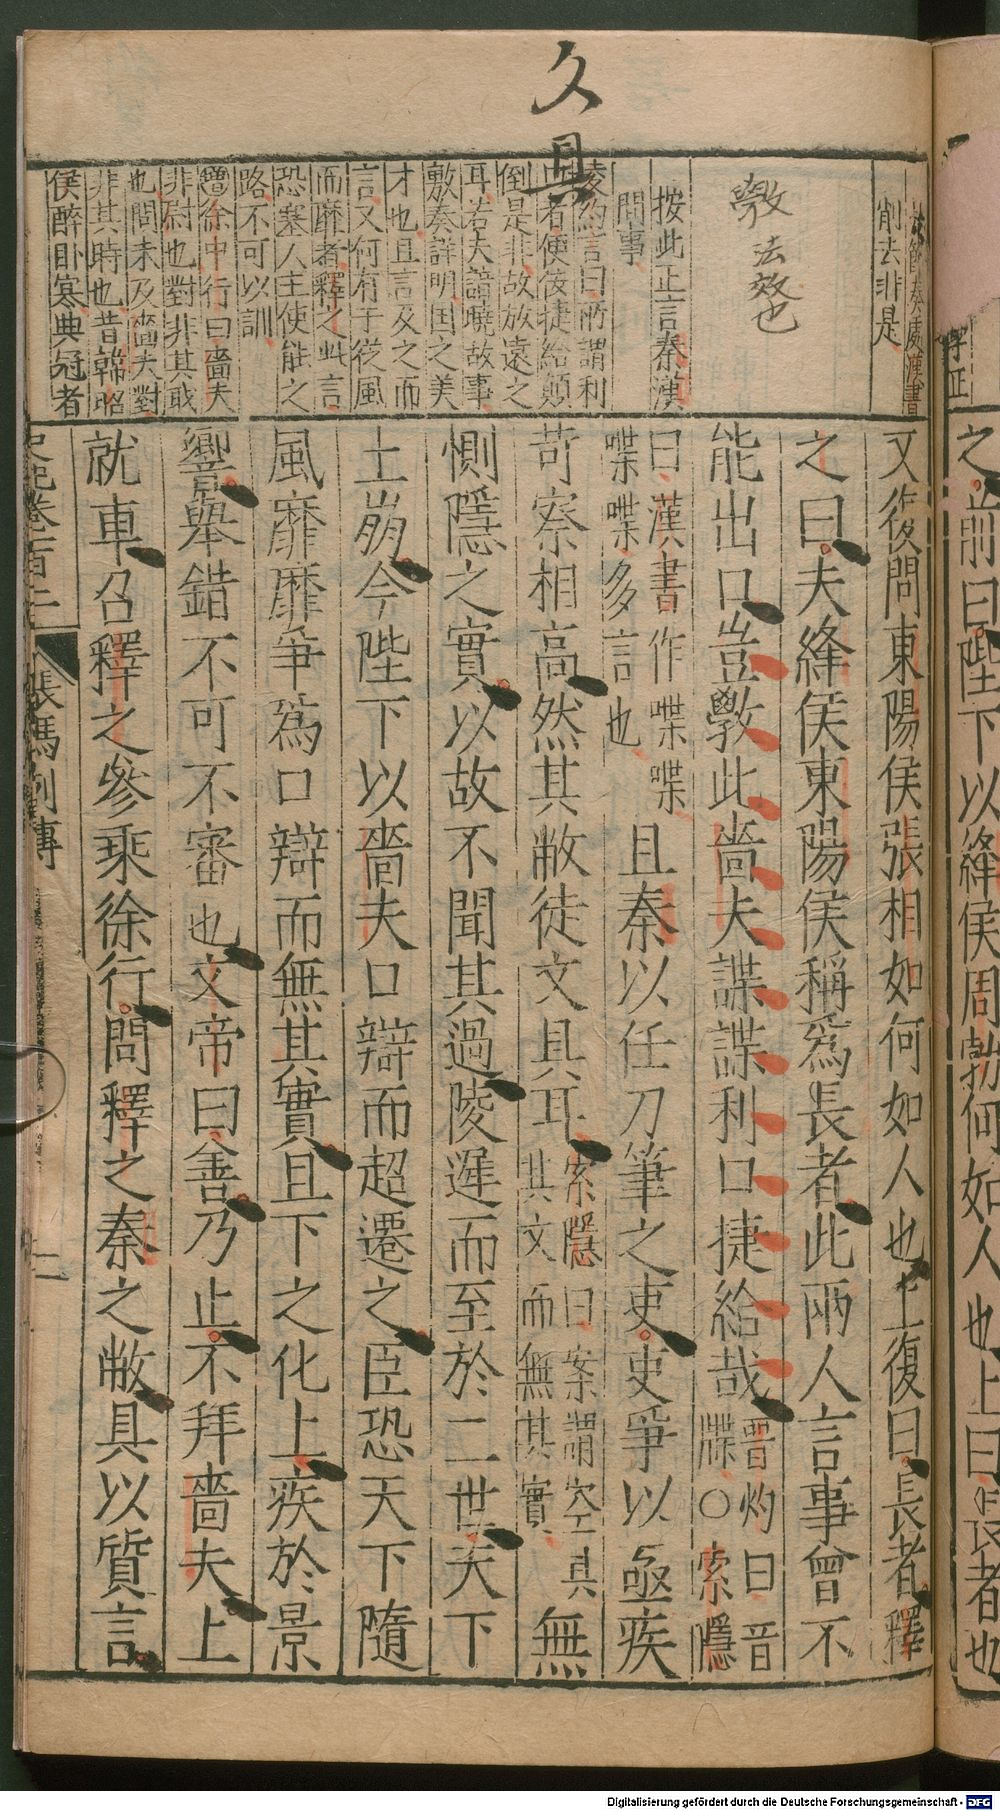 之前曰陛下以絳侯周勃何如人也上曰長者也
又復問東陽侯張相如何如人也上復曰長者釋
之曰夫絳侯東陽侯稱為長者此兩人言事曾不
能出口豈斆此嗇夫諜諜利口捷給哉
晉灼曰音
牒○索隱
曰漢書作喋喋
喋喋多言也
且秦以任刀筆之吏吏爭以亟疾
苛察相高然其敝徒文具耳
索隱曰案謂空具
其文而無其實
無
惻隱之實以故不聞其過陵遲而至於二世天下
土崩今陛下以嗇夫口辯而超遷之臣恐天下隨
風靡靡爭為口辯而無其實且下之化上疾於景
響舉錯不可不審也文帝曰善乃止不拜嗇夫上
就車召釋之參乘徐行問釋之秦之敝具以質言
史記卷一百二
張馮列傳
文具
削去非是
斆法效也
按此正言秦漢
間事
凌約言曰所謂利
口者便佞捷給顛
倒是非故放遠之
耳若夫諳曉故事
敷奏詳明国之美
才也且言及之而
言又何有于從風
而靡者釋之此言
恐塞人主使能之
路不可以訓
徐中行曰嗇夫
非尉也對非其職
也問未及嗇夫對
非其時也昔韓昭
侯醉卧寒典冠者
Digitalisierung gefördert durch die Deutsche Forschungsgemeinschaft - DFG